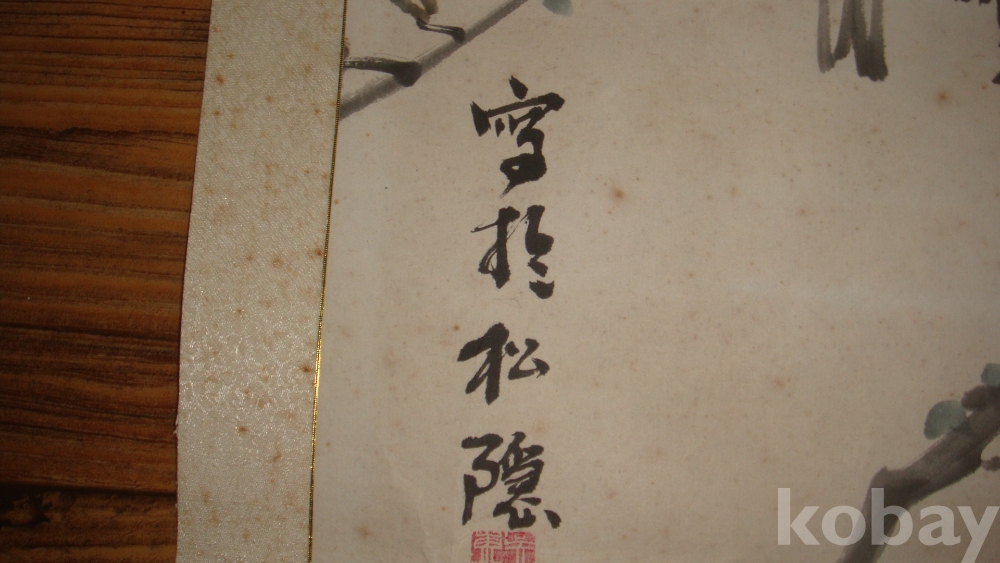 寫於松隱
kobay